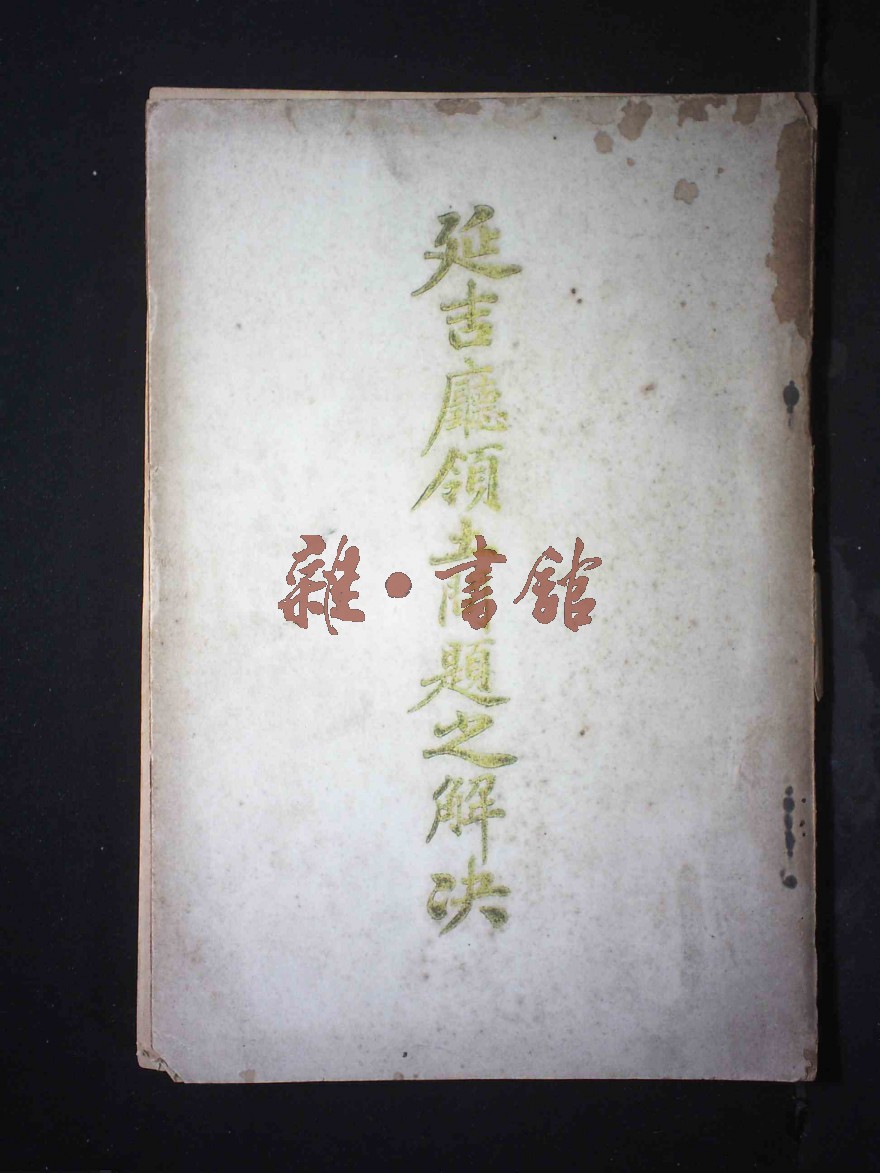 延吉廳領土問題之解决
雜·書館